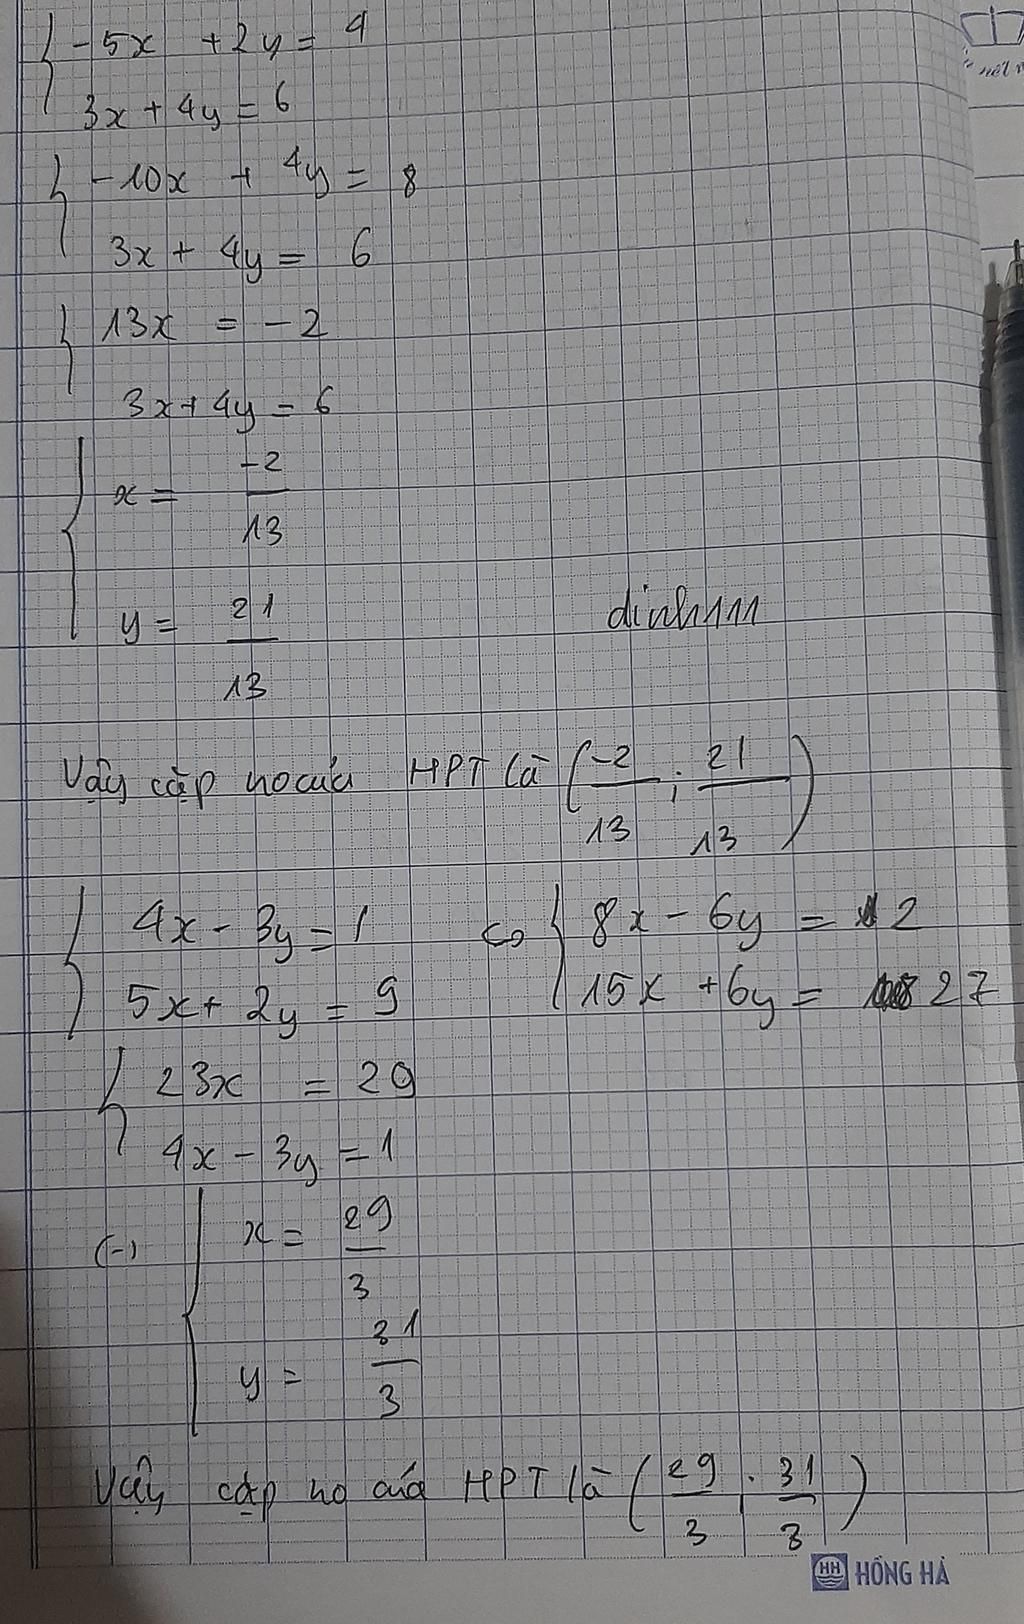 -5x + 2y = 4
3x + 4y = 6
-10x + 4y = 8
3x + 4y = 6
13x = -2
3x + 4y = 6
x = -2/13
y = 21/13
dinh111
Vậy cặp no của HPT là (-2/13 ; 21/13)
4x - 3y = 1 <=> 8x - 6y = 2
5x + 2y = 9 15x + 6y = 27
23x = 29
4x - 3y = 1
(-) x = 29/3
y = 31/3
Vậy cặp no của HPT là (29/3 ; 31/3)
HH HỒNG HÀ